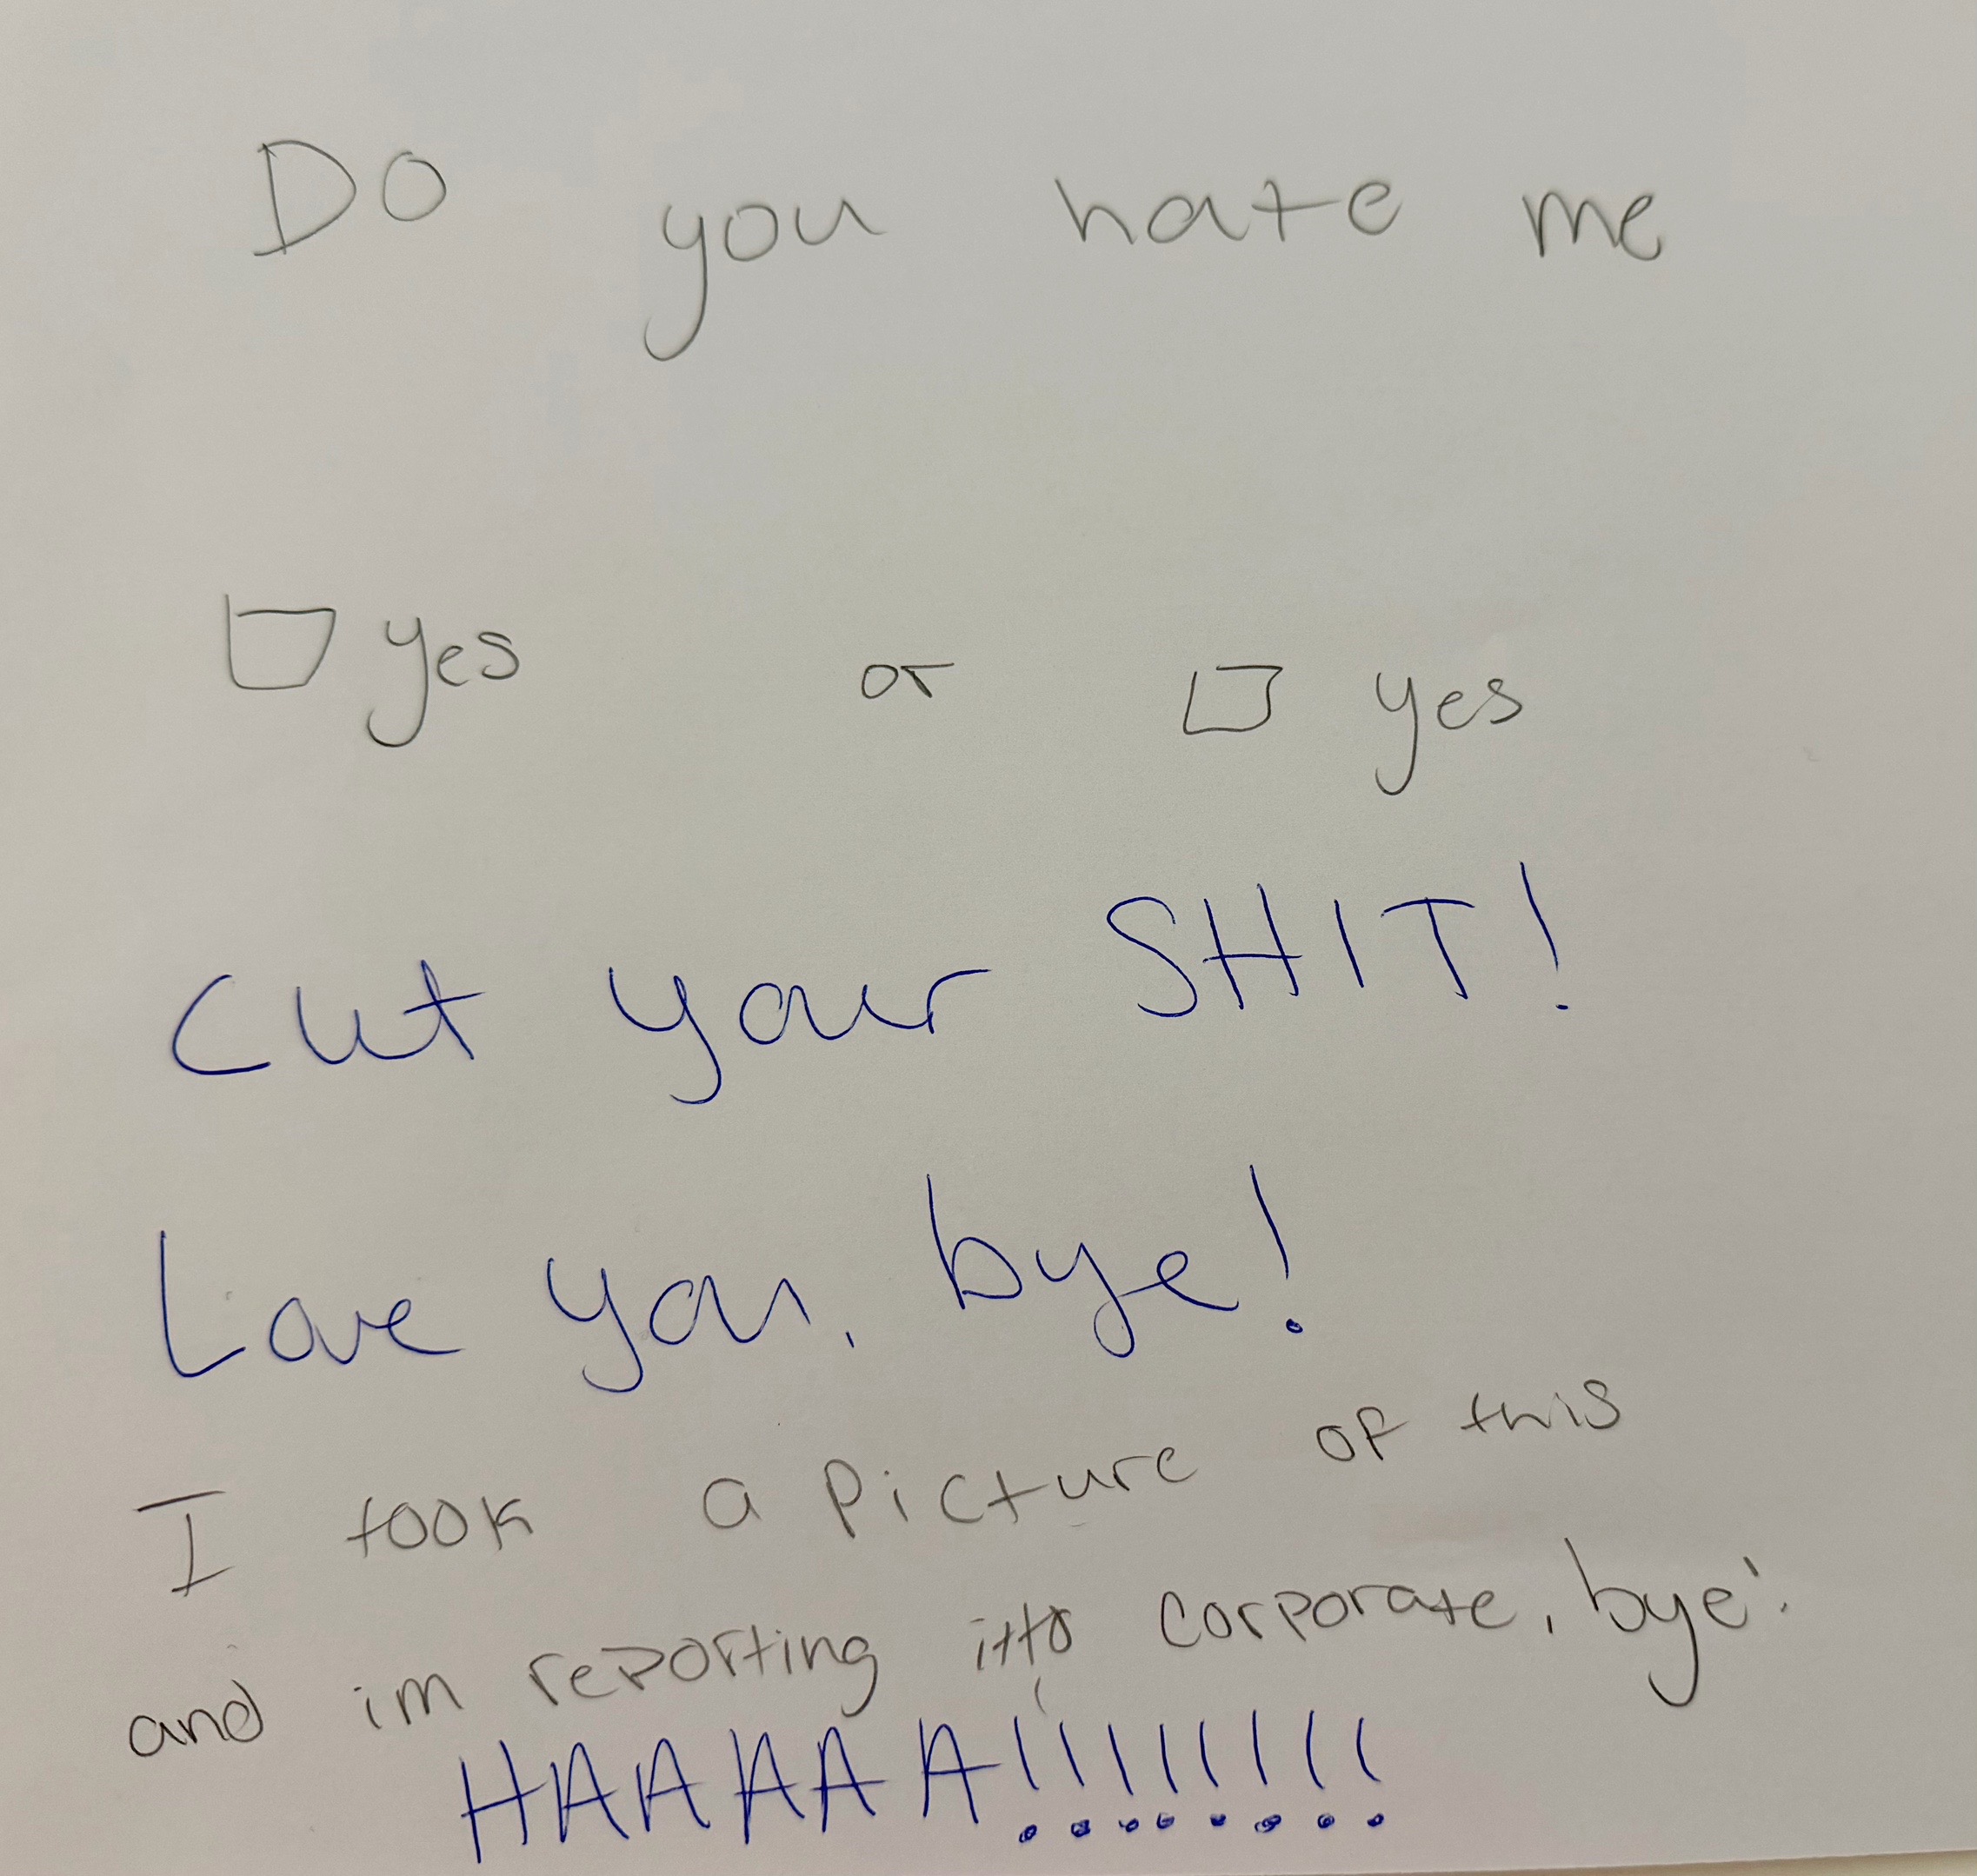 Do you hate me
yes or yes
cut your SHIT!
Love you, bye!
I took a picture of this
and im reporting it to corporate, bye!
HAAAAA!!!!!!!!!